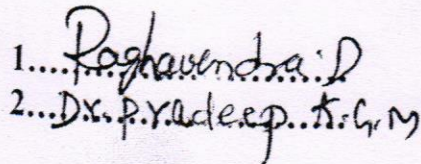 1....Raghavendra. D
2...Dr. Pradeep. K.G.M